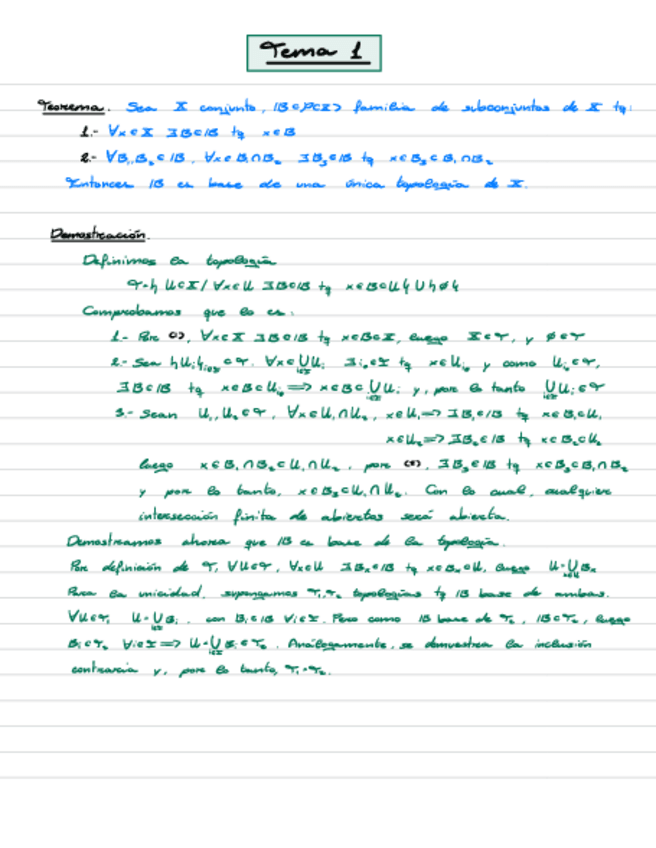 Tema 1
Teorema. Sea X conjunto, 𝔹⊂P(X) familia de subconjuntos de X tq:
1.- ∀x∈X ∃B∈𝔹 tq x∈B
2.- ∀B₁,B₂∈𝔹, ∀x∈B₁∩B₂ ∃B₃∈𝔹 tq x∈B₃⊂B₁∩B₂
Entonces 𝔹 es base de una única topología de X.
Demostración.
Definimos la topología
τ={U⊂X / ∀x∈U ∃B∈𝔹 tq x∈B⊂U}∪{∅}
Comprobamos que lo es:
1.- Por (1), ∀x∈X ∃B∈𝔹 tq x∈B⊂X, luego X∈τ, y ∅∈τ
2.- Sea {Uᵢ}ᵢ∈I⊂τ. ∀x∈⋃Uᵢ ∃i₀∈I tq x∈Uᵢ₀ y como Uᵢ₀∈τ,
∃B∈𝔹 tq x∈B⊂Uᵢ₀ ⟹ x∈B⊂⋃Uᵢ y, por lo tanto ⋃Uᵢ∈τ
3.- Sean U₁,U₂∈τ, ∀x∈U₁∩U₂, x∈U₁⟹∃B₁∈𝔹 tq x∈B₁⊂U₁
x∈U₂⟹∃B₂∈𝔹 tq x∈B₂⊂U₂
luego x∈B₁∩B₂⊂U₁∩U₂, por (2), ∃B₃∈𝔹 tq x∈B₃⊂B₁∩B₂
y por lo tanto, x∈B₃⊂U₁∩U₂. Con lo cual, cualquier
intersección finita de abiertos será abierta.
Demostramos ahora que 𝔹 es base de la topología.
Por definición de τ, ∀U∈τ, ∀x∈U ∃Bₓ∈𝔹 tq x∈Bₓ⊂U, luego U=⋃Bₓ
Para la unicidad, supongamos τ₁,τ₂ topologías tq 𝔹 base de ambas.
∀U∈τ₁ U=⋃Bᵢ, con Bᵢ∈𝔹 ∀i∈I. Pero como 𝔹 base de τ₂, 𝔹⊂τ₂, luego
Bᵢ∈τ₂ ∀i∈I ⟹ U=⋃Bᵢ∈τ₂. Análogamente, se demuestra la inclusión
contraria y, por lo tanto, τ₁=τ₂.